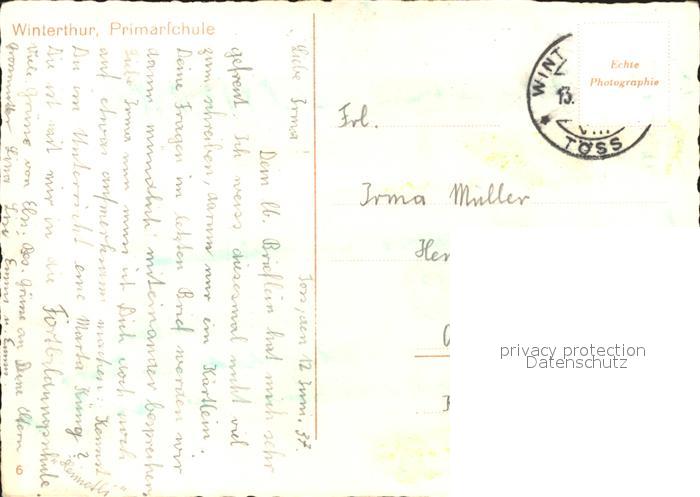 Winterthur, Primarschule
Töss, den 12. Juni. 37
Liebe Irma!
Dein lb. Brieflein hat mich sehr
gefreut. Ich weiss diesesmal nicht viel
zum schreiben, darum nur ein Kärtlein.
Deine Fragen im letzten Brief werden wir
dann mündlich miteinander besprechen.
Liebe Irma nun muss ich Dich noch
auf etwas aufmerksam machen: Kennst
Du im Unterricht eine Martha Küng?
Die ist mit mir in die Fortbildungsschule
Viele Grüsse von Elsi. Bes. Grüsse an Deine Eltern
Grossmutter Lina Lisi Emma u.
6
Frl.
Irma Müller
WINT
13.
VIII
TÖSS
Echte
Photographie
privacy protection
Datenschutz